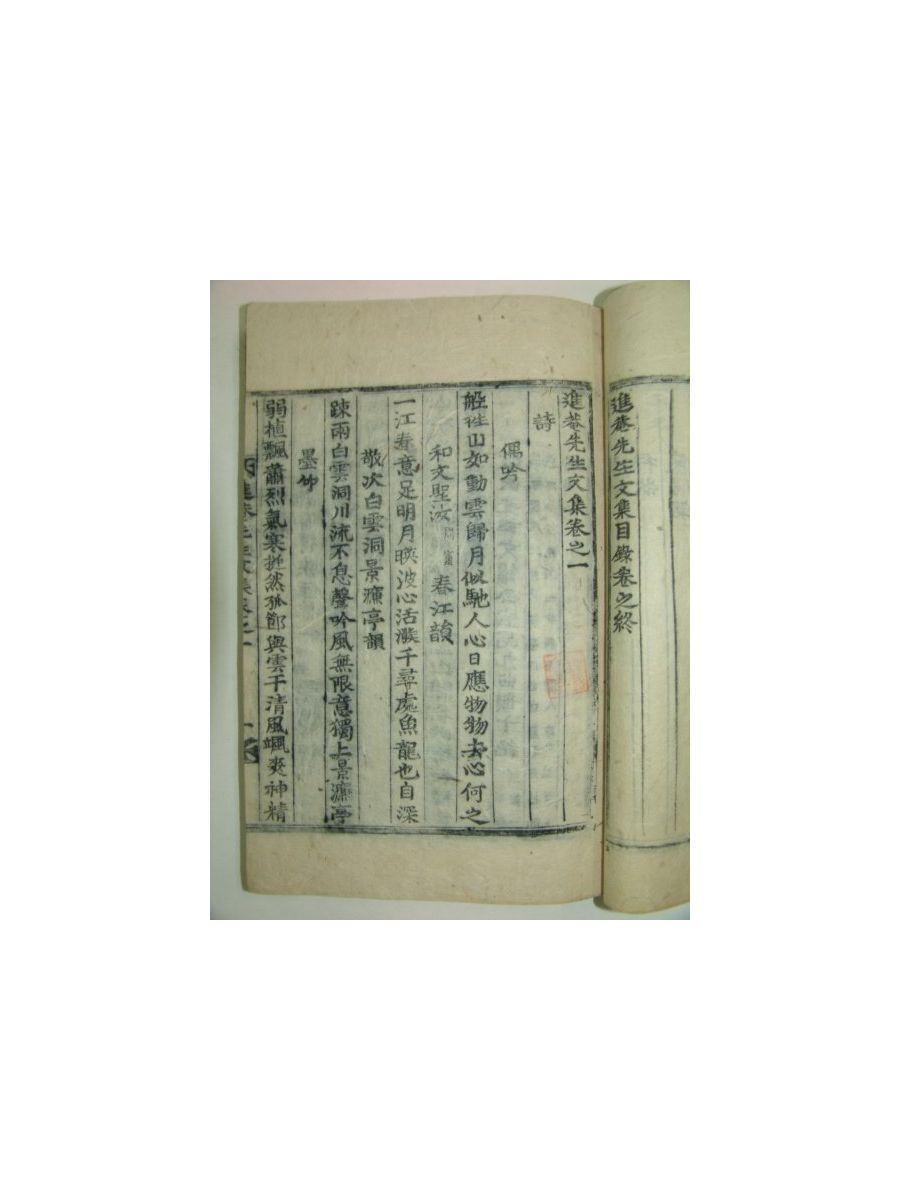 進菴先生文集目錄卷之終
進菴先生文集卷之一
詩
偶吟
船徃山如動雲歸月似馳人心日應物物去心何之
和文聖汝 春江韻
一江春意足明月暎波心活潑千尋處魚龍也自深
敬次白雲洞景濂亭韻
踈雨白雲洞川流不息聲吟風無限意獨上景濂亭
墨竹
弱植飄蕭烈氣寒挺然孤節與雲干清風颯爽神精
進菴先生文集卷之一